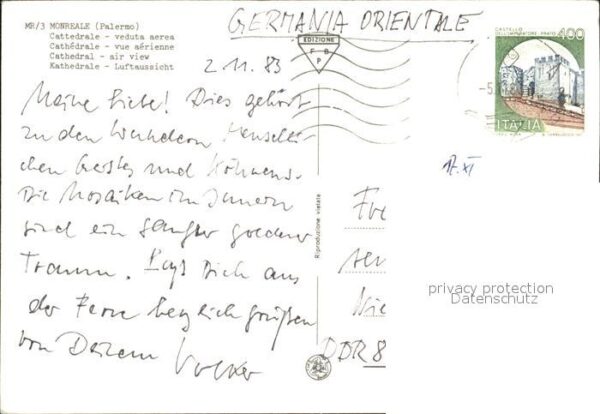 MR/3 MONREALE (Palermo)
Cattedrale - veduta aerea
Cathédrale - vue aérienne
Cathedral - air view
Kathedrale - Luftaussicht
GERMANIA ORIENTALE
EDIZIONE
F B
P
CASTELLO
DELL'IMPERATORE - PRATO
400
ITALIA
2.11.83
Meine Liebe! Dies gehört
zu den Wundern Menschli-
chen Geistes und Könnens.
Die Mosaiken im Innern
sind ein sanfter goldener
Traum. Laß Dich aus
der Ferne herzlich grüßen
von Deinem Volker
Riproduzione vietata
17.XI
Fre
Wie
DDR 8
privacy protection
Datenschutz